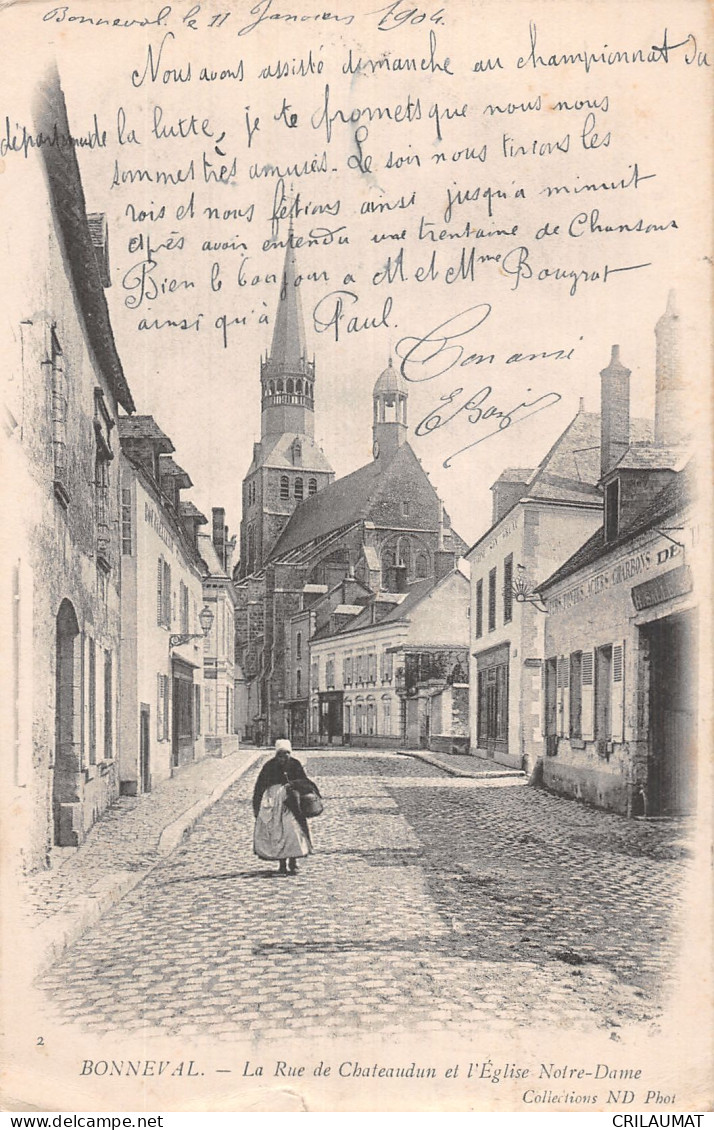 Bonneval le 11 Janvier 1904.
Nous avons assisté dimanche au championnat du
département de la lutte, je te promets que nous nous
sommes très amusés. Le soir nous tirions les
rois et nous fêtions ainsi jusqu'à minuit
après avoir entendu une trentaine de Chansons
Bien le bonjour a M. et Mme Bougrat
ainsi qu'à Paul.
Ton ami
DE
FERS, FONTES, ACIERS CHARBONS
2
BONNEVAL. - La Rue de Chateaudun et l'Église Notre-Dame
Collections ND Phot
CRILAUMAT